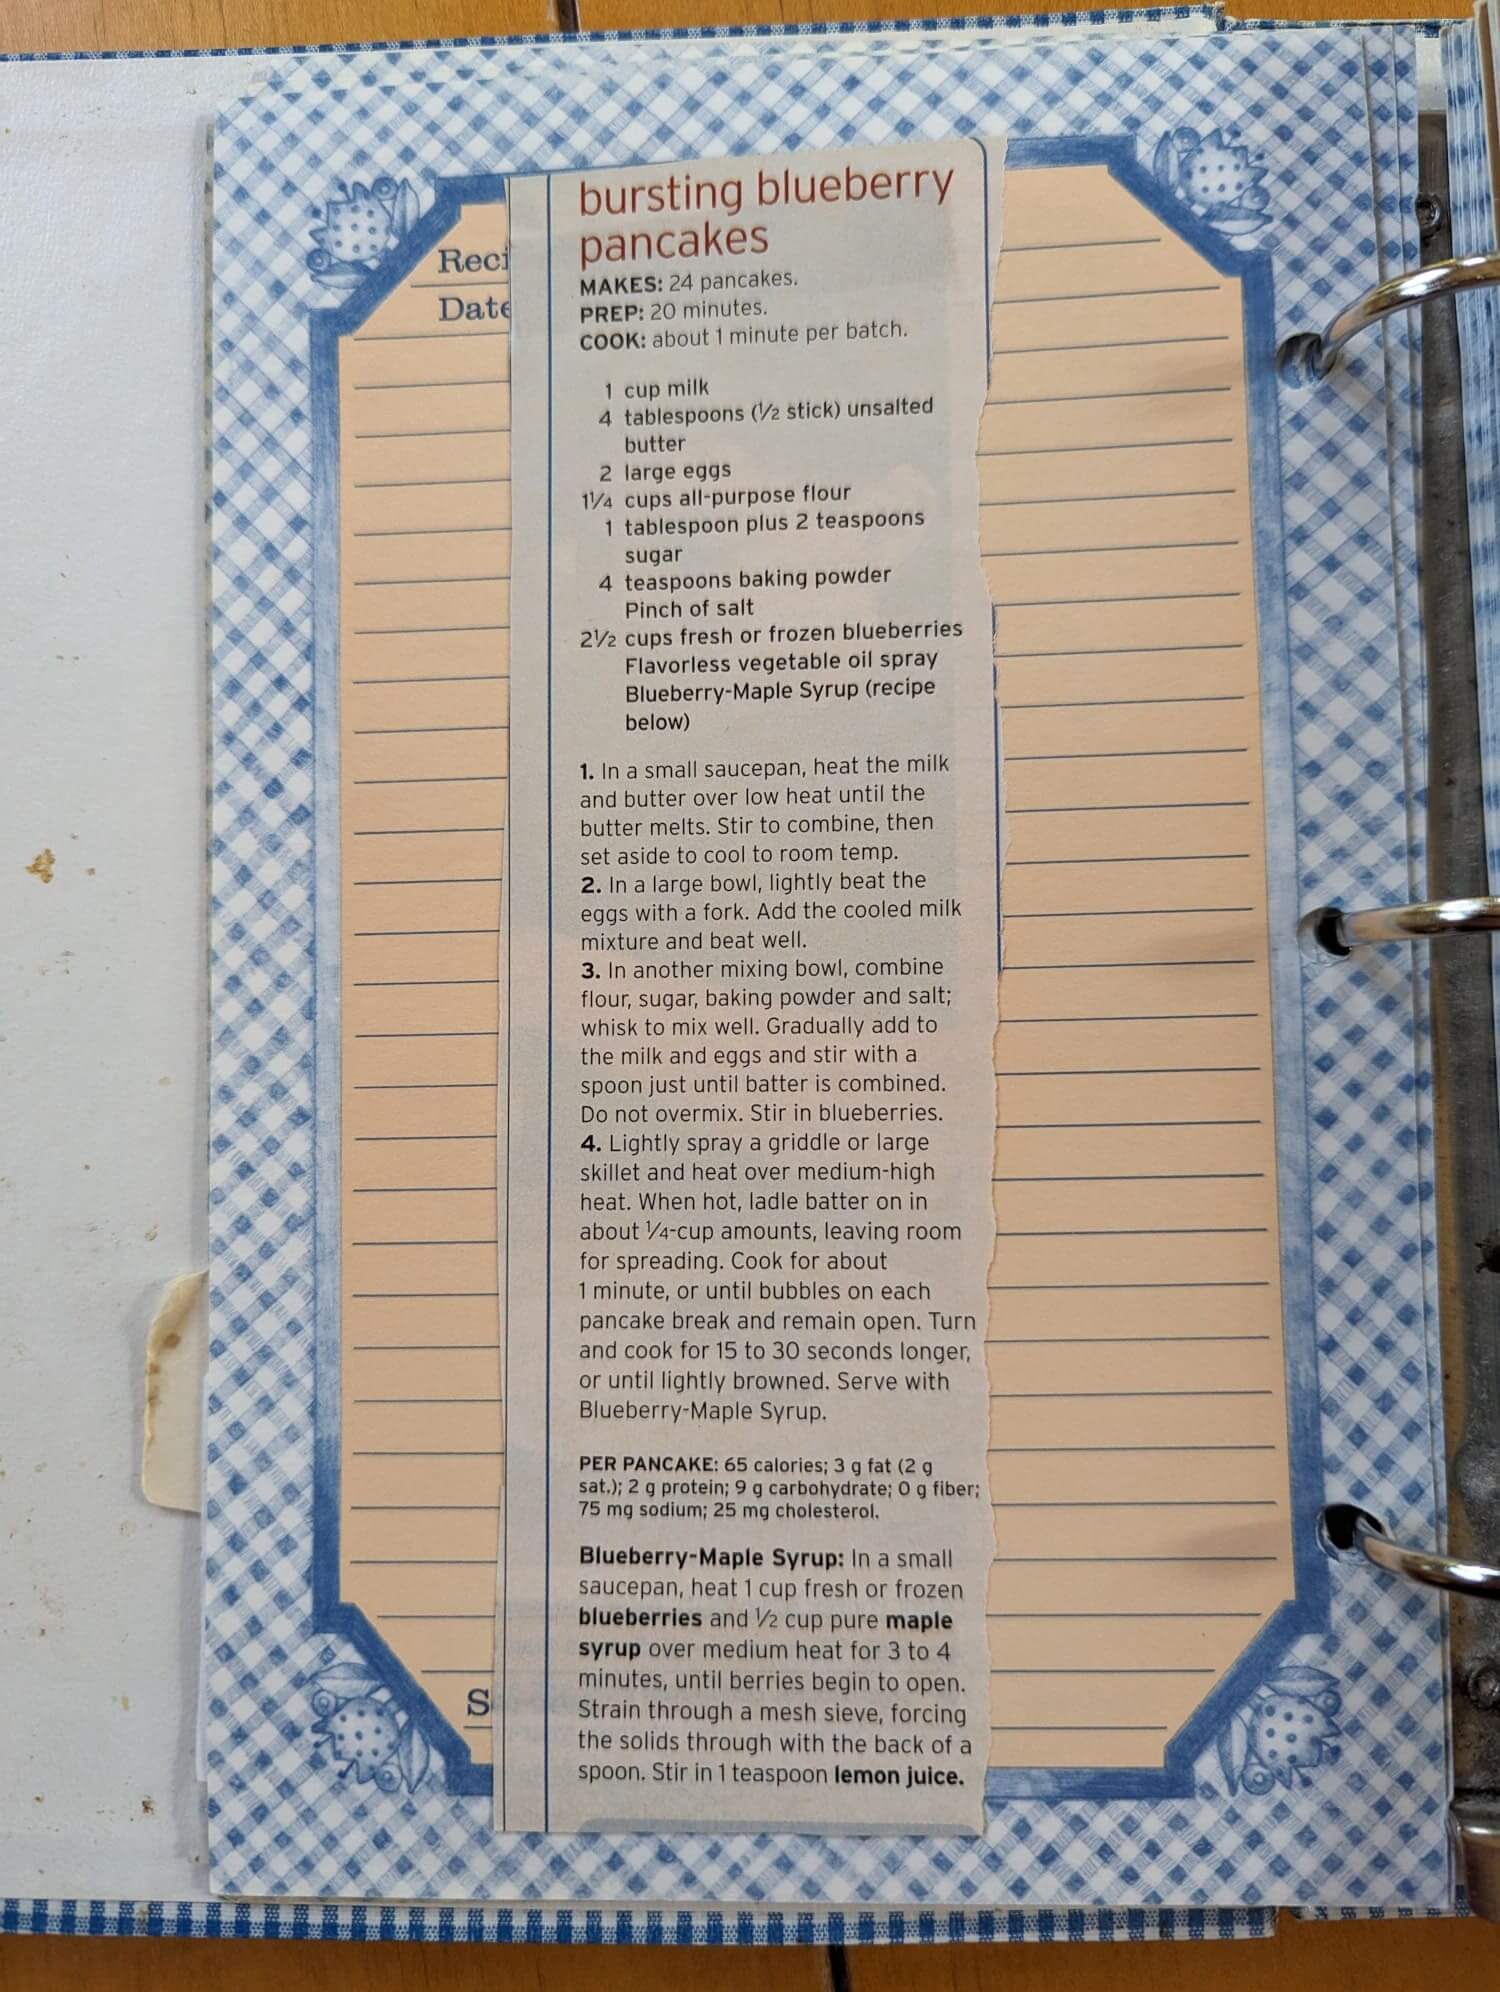 bursting blueberry
pancakes
MAKES: 24 pancakes.
PREP: 20 minutes.
COOK: about 1 minute per batch.
1 cup milk
4 tablespoons (½ stick) unsalted
butter
2 large eggs
1¼ cups all-purpose flour
1 tablespoon plus 2 teaspoons
sugar
4 teaspoons baking powder
Pinch of salt
2½ cups fresh or frozen blueberries
Flavorless vegetable oil spray
Blueberry-Maple Syrup (recipe
below)
1. In a small saucepan, heat the milk
and butter over low heat until the
butter melts. Stir to combine, then
set aside to cool to room temp.
2. In a large bowl, lightly beat the
eggs with a fork. Add the cooled milk
mixture and beat well.
3. In another mixing bowl, combine
flour, sugar, baking powder and salt;
whisk to mix well. Gradually add to
the milk and eggs and stir with a
spoon just until batter is combined.
Do not overmix. Stir in blueberries.
4. Lightly spray a griddle or large
skillet and heat over medium-high
heat. When hot, ladle batter on in
about ¼-cup amounts, leaving room
for spreading. Cook for about
1 minute, or until bubbles on each
pancake break and remain open. Turn
and cook for 15 to 30 seconds longer,
or until lightly browned. Serve with
Blueberry-Maple Syrup.
PER PANCAKE: 65 calories; 3 g fat (2 g
sat.); 2 g protein; 9 g carbohydrate; 0 g fiber;
75 mg sodium; 25 mg cholesterol.
Blueberry-Maple Syrup: In a small
saucepan, heat 1 cup fresh or frozen
blueberries and ½ cup pure maple
syrup over medium heat for 3 to 4
minutes, until berries begin to open.
Strain through a mesh sieve, forcing
the solids through with the back of a
spoon. Stir in 1 teaspoon lemon juice.
Reci
Date
S